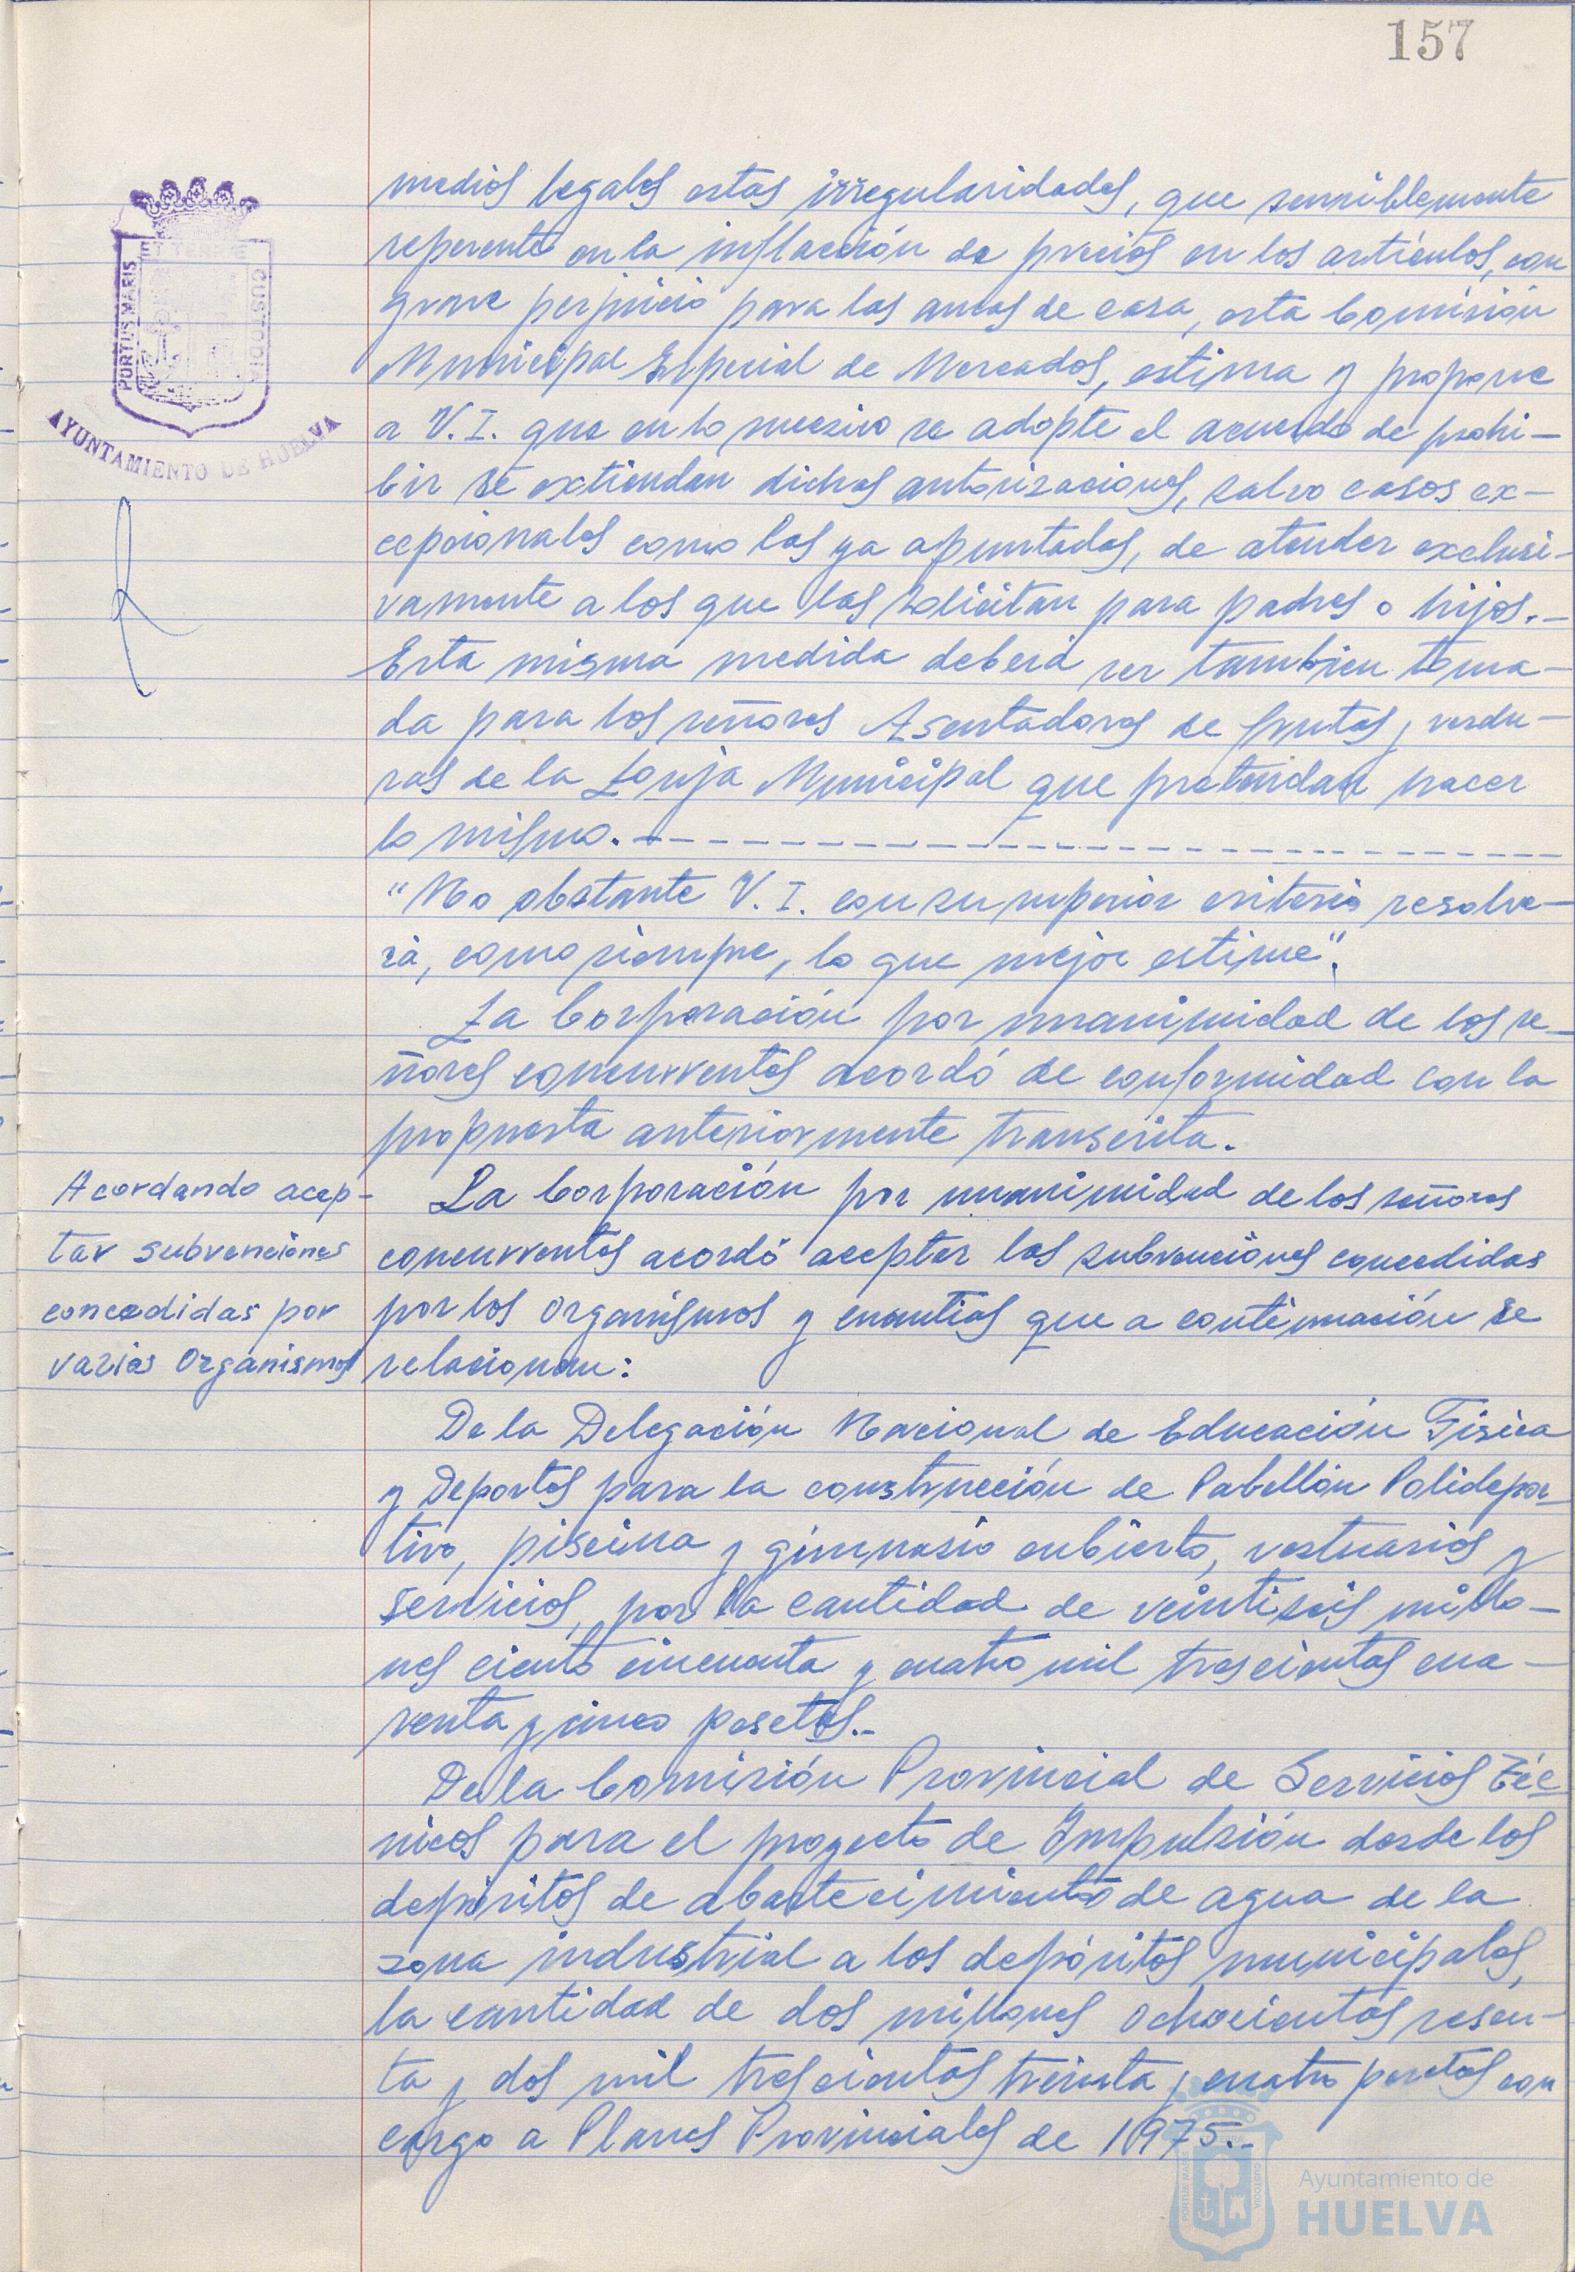 157
PORTUS MARIS
ET TERRAE
CUSTODIA
AYUNTAMIENTO DE HUELVA
medios legales estas irregularidades, que sensiblemente
repercute en la inflacción de precios en los artículos, con
grave perjuicio para las amas de casa, esta Comisión
Municipal Especial de Mercados, estima y propone
a V.I. que en lo sucesivo se adopte el acuerdo de prohi-
bir se extiendan dichas autorizaciones, salvo casos ex-
cepcionales como los ya apuntados, de atender exclusi-
vamente a los que las solicitan para padres o hijos.-
Esta misma medida deberá ser tambien toma-
da para los señores Asentadores de frutas y verdu-
ras de la Lonja Municipal que pretendan hacer
lo mismo.-
"No obstante V.I. con su superior criterio resolve-
rá, como siempre, lo que mejor estime".
La Corporación por unanimidad de los se-
ñores concurrentes acordó de conformidad con la
propuesta anteriormente transcrita.
Acordando acep-
tar subvenciones
concedidas por
varios Organismos
La Corporación por unanimidad de los señores
concurrentes acordó aceptar las subvenciones concedidas
por los Organismos y cuantias que a continuación se
relacionan:
De la Delegación Nacional de Educación Fisica
y Deportes para la construcción de Pabellón Polidepor-
tivo, piscina y gimnasio cubierto, vestuarios y
servicios, por la cantidad de veintiseis millo-
nes ciento cincuenta y cuatro mil trescientas cua-
renta y cinco pesetas.-
De la Comisión Provincial de Servicios Téc-
nicos para el proyecto de Impulsión desde los
depósitos de abastecimiento de agua de la
zona industrial a los depósitos municipales,
la cantidad de dos millones ochocientas sesen-
ta y dos mil trescientas treinta y cuatro pesetas con
cargo a Planes Provinciales de 1975.-
Ayuntamiento de
HUELVA